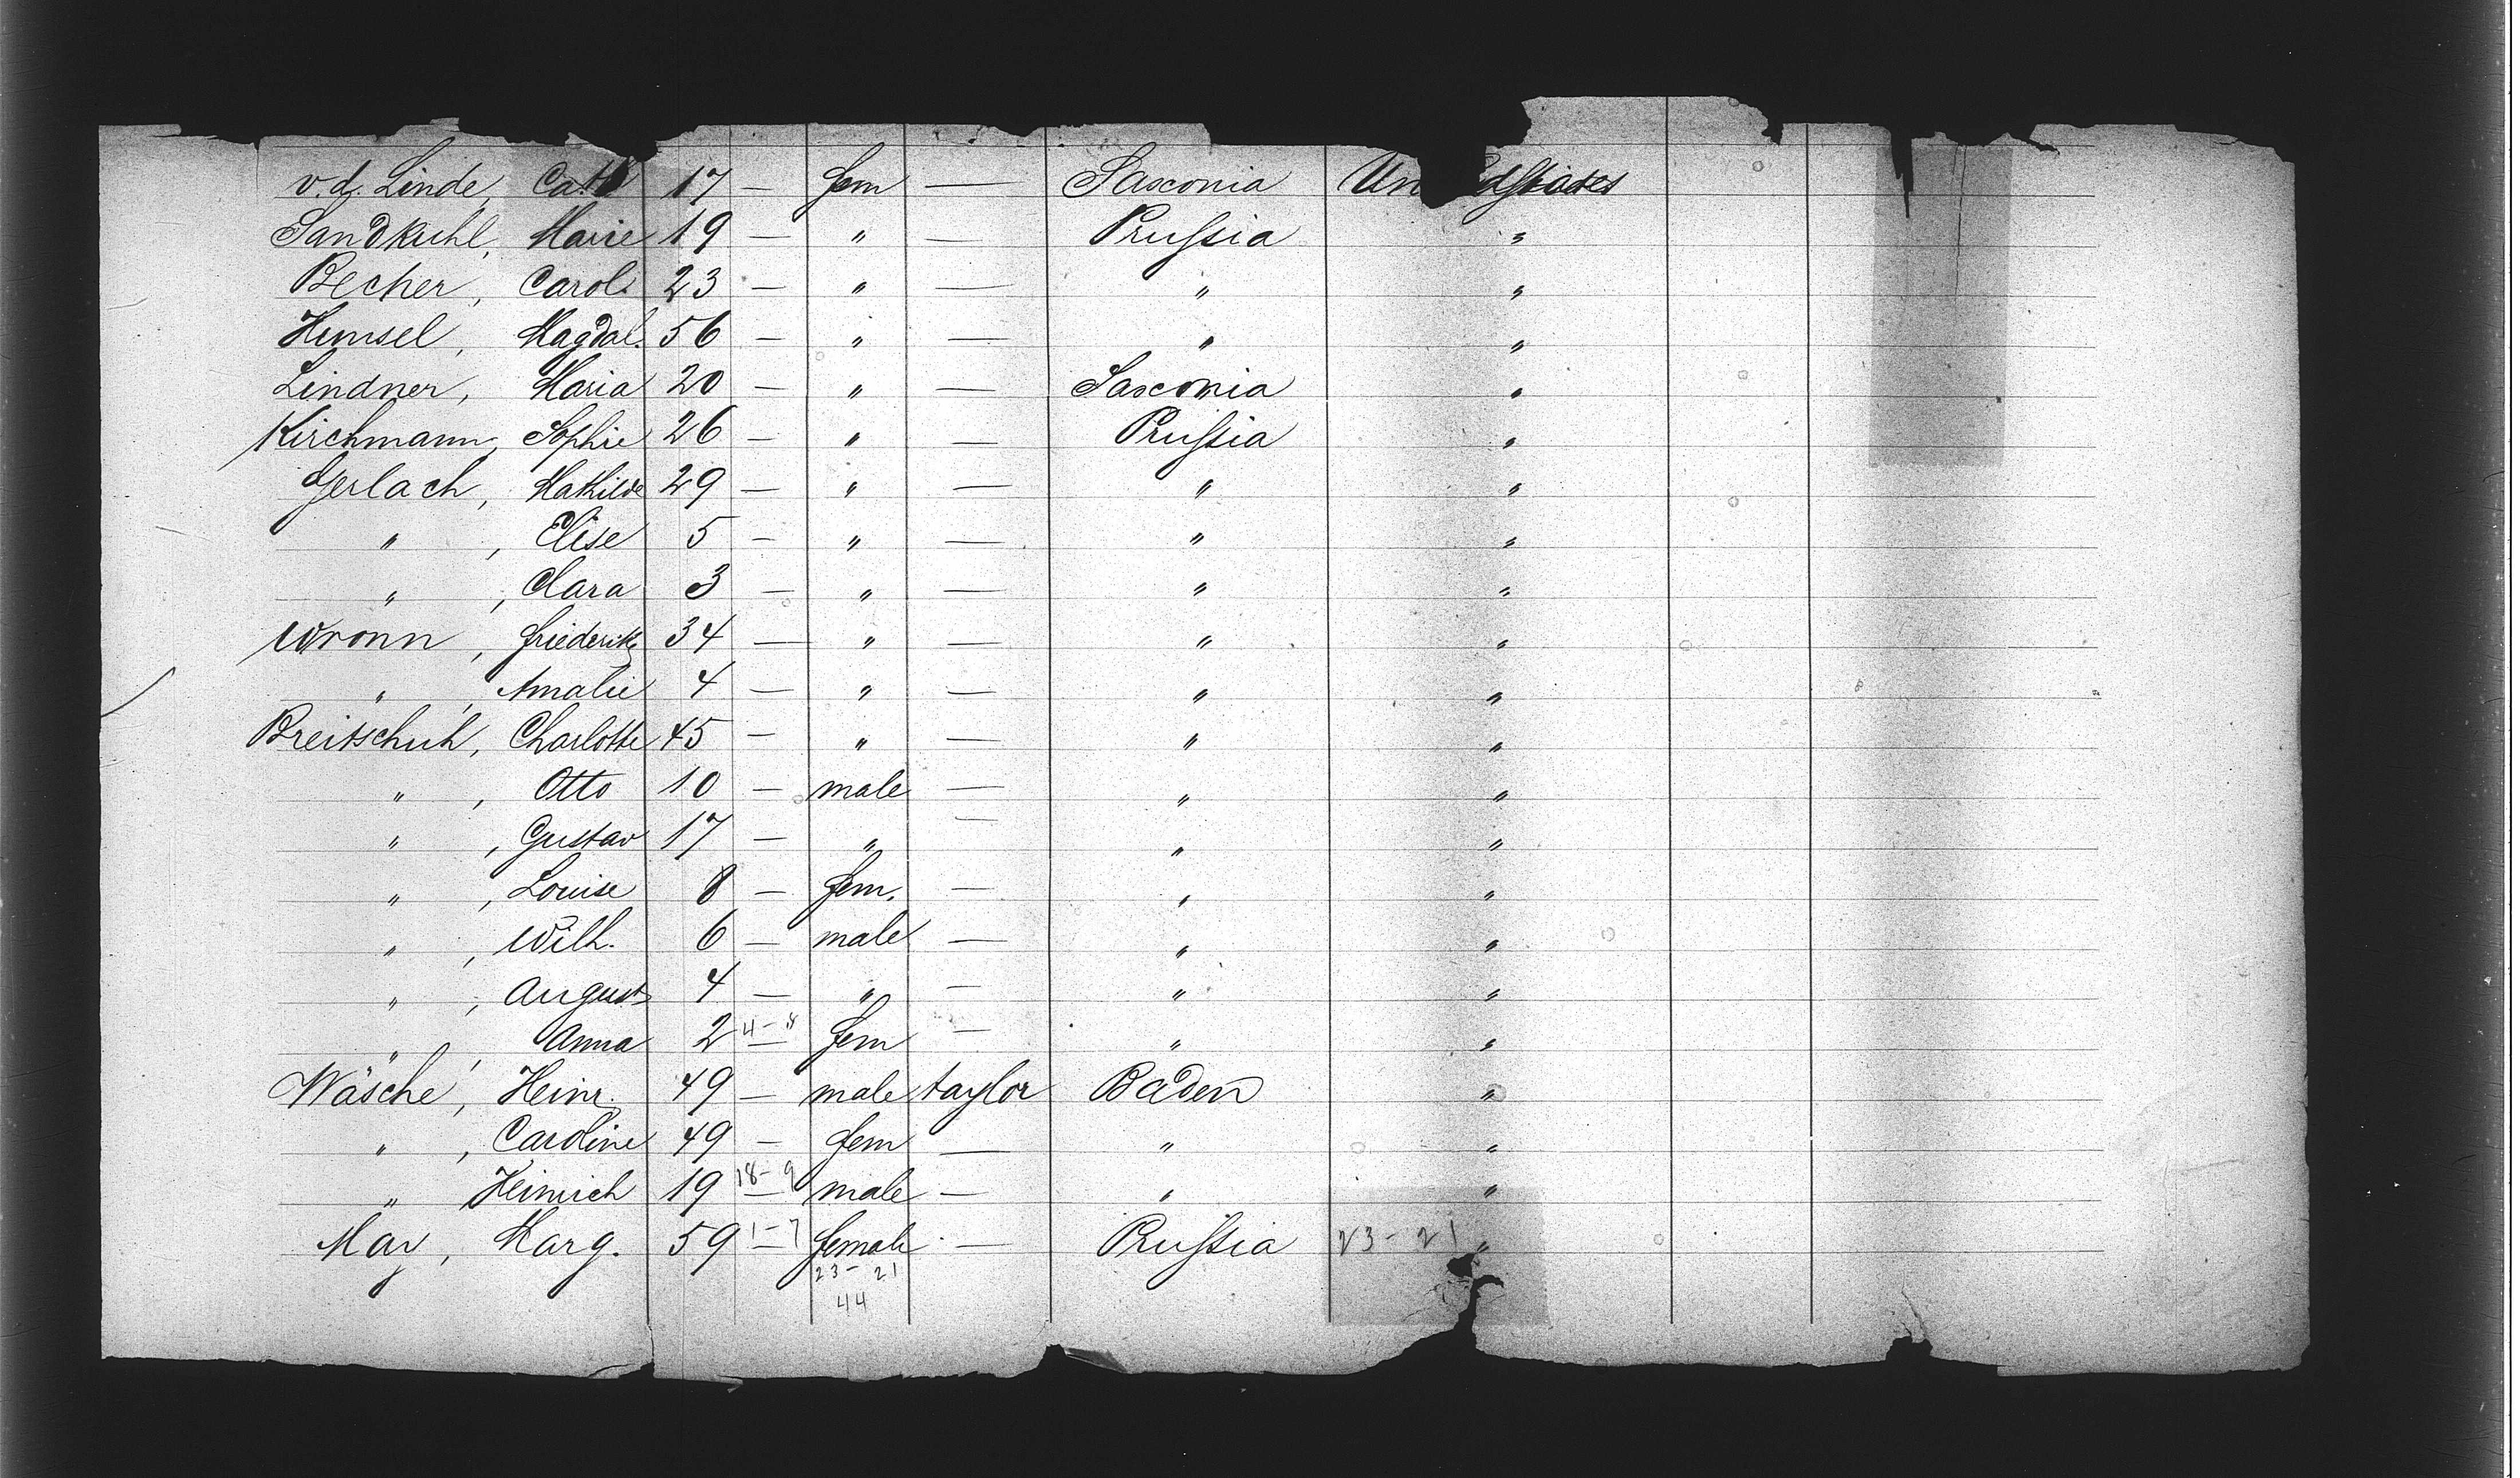 v. d. Linde, Cath 17 — fem — Saxonia Un edstates
Sandkuhl, Marie 19 — " — Prussia "
Becher, Carol. 23 — " — " "
Himsel, Magdal. 56 — " — " "
Lindner, Maria 20 — " — Saxonia "
Kirchmann, Sophie 26 — " — Prussia "
Gerlach, Mathilde 29 — " — " "
", Elise 5 — " — " "
", Clara 3 — " — " "
Wronn, Friederike 34 — " — " "
", Amalie 4 — " — " "
Breitschuh, Charlotte 45 — " — " "
", Otto 10 — male — " "
", Gustav 17 — " — " "
", Louise 8 — fem. — " "
", Wilh. 6 — male — " "
", August 4 — " — " "
", Anna 2 4-8 — fem — " "
Wäsche, Heinr. 49 — male taylor Baden "
", Caroline 49 — fem — " "
" Heinrich 19 18-9 — male — " "
May, Marg. 59 1-7 — female — Prussia 23-21 "
23-21
44